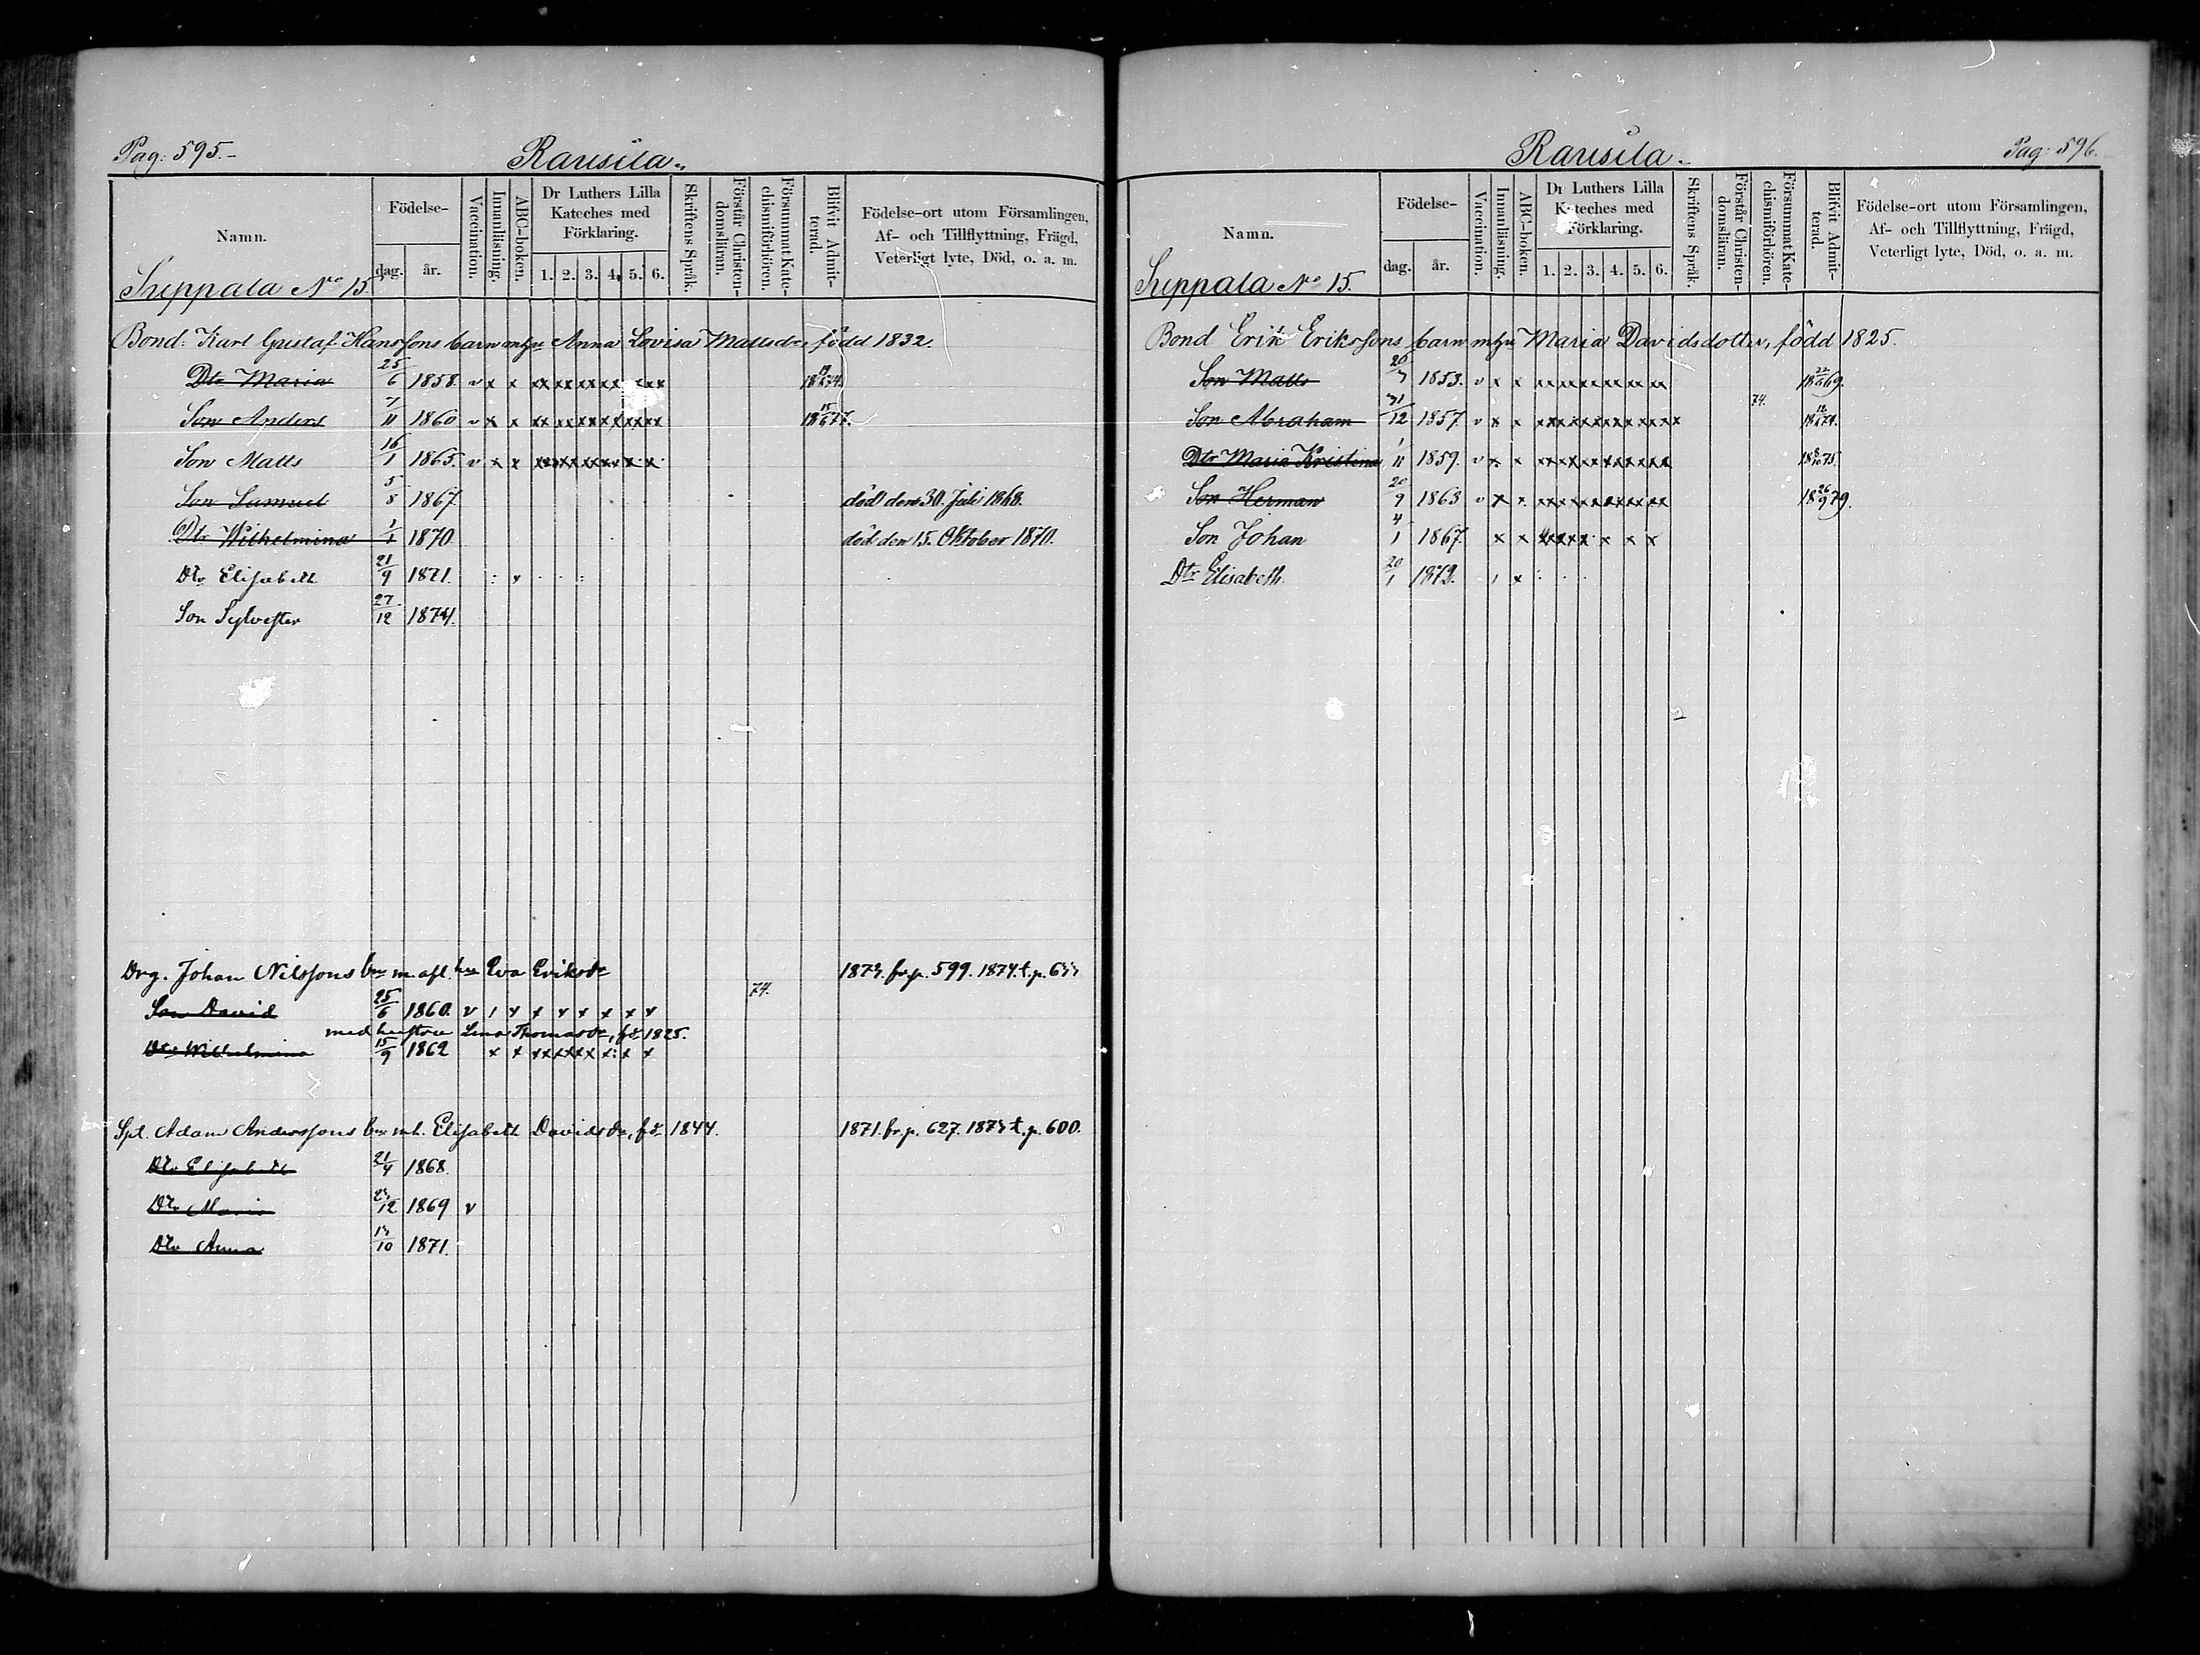 Pag: 595.-
Rausila.
Namn.
Födelse-
dag.
år.
Vaccination.
Innanläsning.
ABC-boken.
Dr Luthers Lilla Kateches med Förklaring.
1. 2. 3. 4. 5. 6.
Skriftens Språk.
Förstår Christendomsläran.
Försummat Katechismiförhören.
Blifvit Admitterad.
Födelse-ort utom Församlingen, Af- och Tillflyttning, Frägd, Veterligt lyte, Död, o. a. m.
Suppala No 15.
Bond: Karl Gustaf Hanssons barn m h:u Anna Lovisa Mattsdr, född 1832.
Dtr Maria 25/6 1858. v x x xx xx xx xx xx xx
Son Anders 7/11 1860 v x x xx xx xx xx xx xx 18 15/6 77.
Son Matts 16/1 1865. v x x
Son Samuel 5/8 1867. död den 30. Juli 1868.
Dtr Wilhelmina 1/1 1870. död den 15. Oktober 1870.
Dtr Elisabeth 21/9 1871.
Son Sylvester 27/12 1874.
Drg. Johan Nilssons bn m. afl. hu Eva Eriksdr 1873. fr. p. 599. 1874. t. p.
74.
Son David 25/6 1860. v 1 x x x x x x x
med hustru Lena Thomasdr, fd 1825.
Dtr Wilhelmina 15/9 1862 x x xx xx xx x: x x
Spl. Adam Anderssons bn m h. Elisabeth Davidsdr, fd 1844. 1871. fr. p. 627. 1873 t. p. 600.
Dtr Elisabeth 21/4 1868.
Dtr Maria 1869 v
Dtr Anna 13/10 1871.
Pag: 596.
Rausila.
Namn.
Födelse-
dag.
år.
Vaccination.
Innanläsning.
ABC-boken.
Dr Luthers Lilla Kateches med Förklaring.
1. 2. 3. 4. 5. 6.
Skriftens Språk.
Förstår Christendomsläran.
Försummat Katechismiförhören.
Blifvit Admitterad.
Födelse-ort utom Församlingen, Af- och Tillflyttning, Frägd, Veterligt lyte, Död, o. a. m.
Suppala No 15.
Bond Erik Erikssons barn m h:u Maria Davidsdotter, född 1825.
Son Matts 20/7 1853. v x x xx xx xx xx xx xx 18 22/6 69.
74.
Son Abraham 31/12 1857. v x x xx xx xx xx xx xx x
Dtr Maria Kristina 1/11 1859. v x x xx xx xx xx xx xx 18 8/10 75.
Son Herman 20/9 1863 v x x xx xx xx xx xx xx 18 26/9 79.
Son Johan 4/1 1867. x x x x x
Dtr Elisabeth 20/1 1872. 1 x